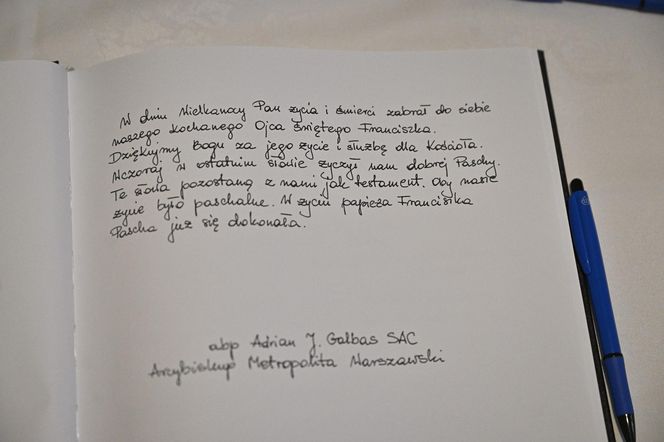 W dniu Wielkanocy Pan życia i śmierci zabrał do siebie
naszego kochanego Ojca Świętego Franciszka.
Dziękujmy Bogu za jego życie i służbę dla Kościoła.
Wczoraj w ostatnim słowie życzył nam dobrej Paschy.
Te słowa pozostaną z nami jak testament. Oby nasze
życie było paschalne. W życiu papieża Franciszka
Pascha już się dokonała.
abp Adrian J. Galbas SAC
Arcybiskup Metropolita Warszawski